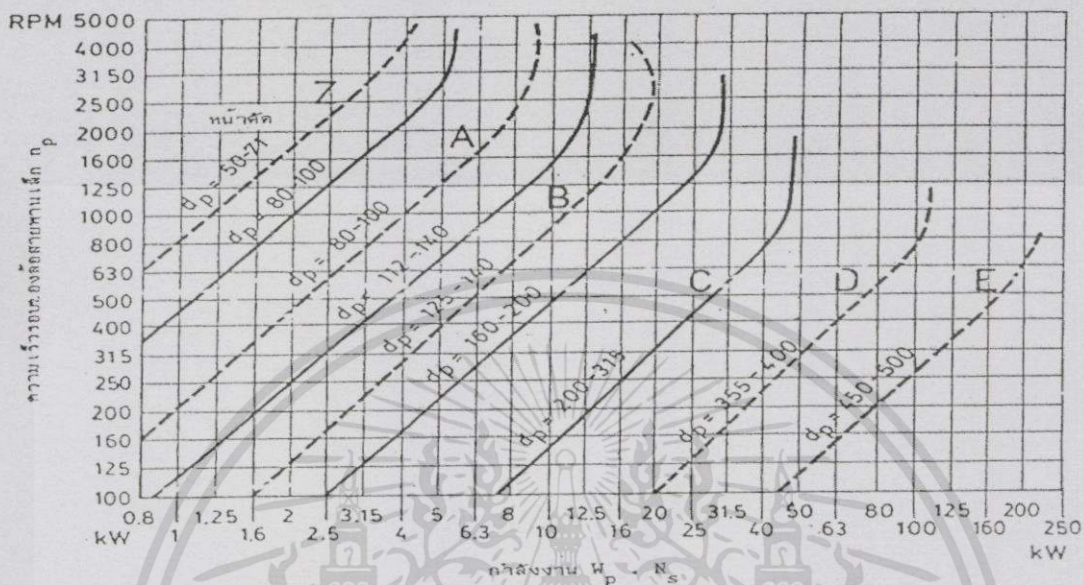 RPM 5000
4000
3150
2500
2000
1600
1250
1000
800
630
500
400
315
250
200
160
125
100
ความเร็วรอบของล้อสายพานเล็ก n_p
หน้าตัด
Z
A
B
C
D
E
d_p = 50-71
d_p = 80-100
d_p = 80-100
d_p = 112-140
d_p = 125-140
d_p = 160-200
d_p = 200-315
d_p = 355-400
d_p = 450-500
0.8 1 1.25 1.6 2 2.5 3.15 4 5 6.3 8 10 12.5 16 20 25 31.5 40 50 63 80 100 125 160 200 250
kW kW
กำลังงาน W_p · N_s